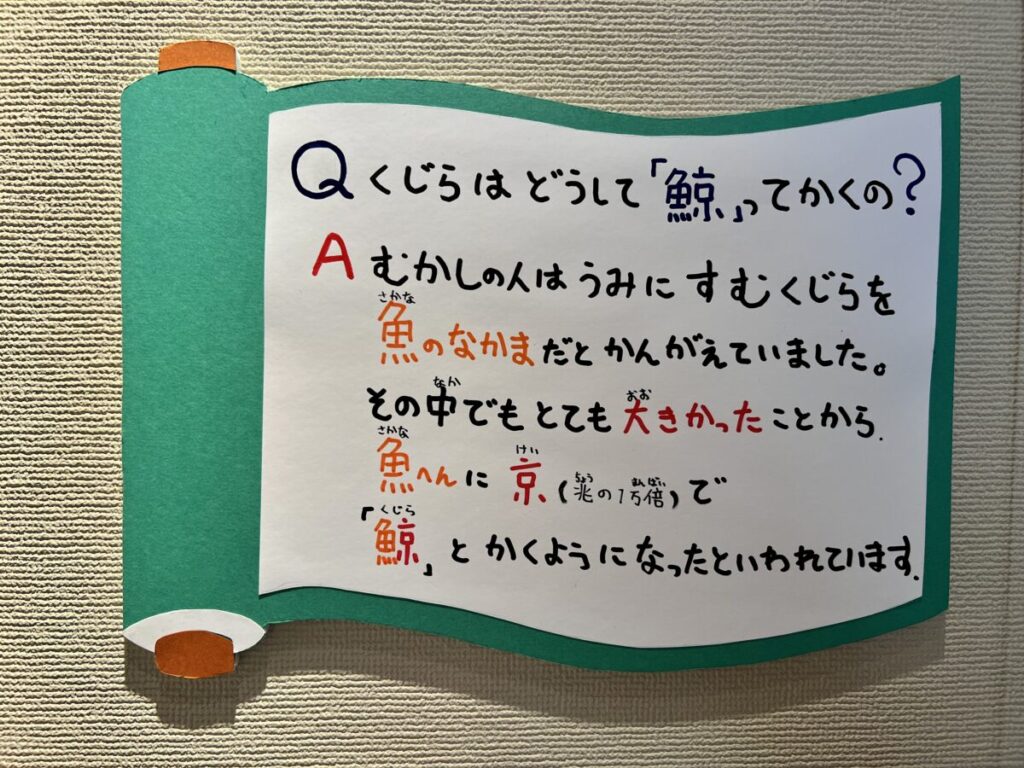 Q くじらは どうして「鯨」ってかくの?
A むかしの人は うみに すむくじらを
さかな
魚のなかまだと かんがえていました。
なか おお
その中でも とても 大きかったことから、
さかな けい ちょう まんばい
魚へんに 京(兆の1万倍)で
くじら
「鯨」と かくように なったといわれています。